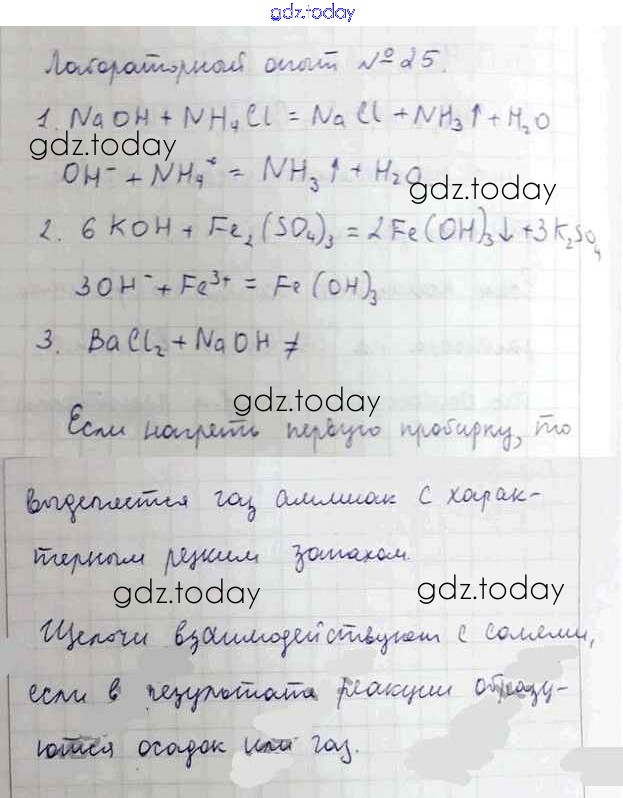 gdz.today
Лабораторный опыт №25.
1. NaOH + NH₄Cl = NaCl + NH₃↑ + H₂O
gdz.today
OH⁻ + NH₄⁺ = NH₃↑ + H₂O
gdz.today
2. 6KOH + Fe₂(SO₄)₃ = 2Fe(OH)₃↓ + 3K₂SO₄
3OH⁻ + Fe³⁺ = Fe(OH)₃
3. BaCl₂ + NaOH ≠
gdz.today
Если нагреть первую пробирку, то
выделяется газ аммиак с харак-
терным резким запахом.
gdz.today gdz.today
Щелочи взаимодействуют с солями,
если в результата реакции образу-
ются осадок или газ.